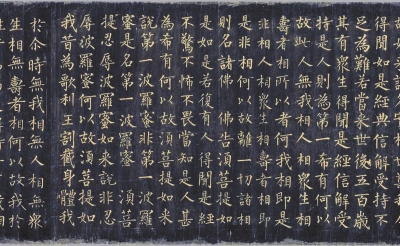 故如來說名實相世尊我今
得聞如是經典信解受持不
足為難若當來世後五百歲
其有眾生得聞是經信解受
持是人則為第一希有何以
故此人無我相人相眾生相
壽者相所以者何我相即是
非相人相眾生相壽者相即
是非相何以故離一切諸相
則名諸佛佛告須菩提如
是如是若復有人得聞是經
不驚不怖不畏當知是人甚
為希有何以故須菩提如來
說第一波羅蜜非第一波羅
蜜是名第一波羅蜜須菩
提忍辱波羅蜜如來說非忍
辱波羅蜜何以故須菩提如
我昔為歌利王割截身體我
於尒時無我相無人相無眾
生相無壽者相何以故我於